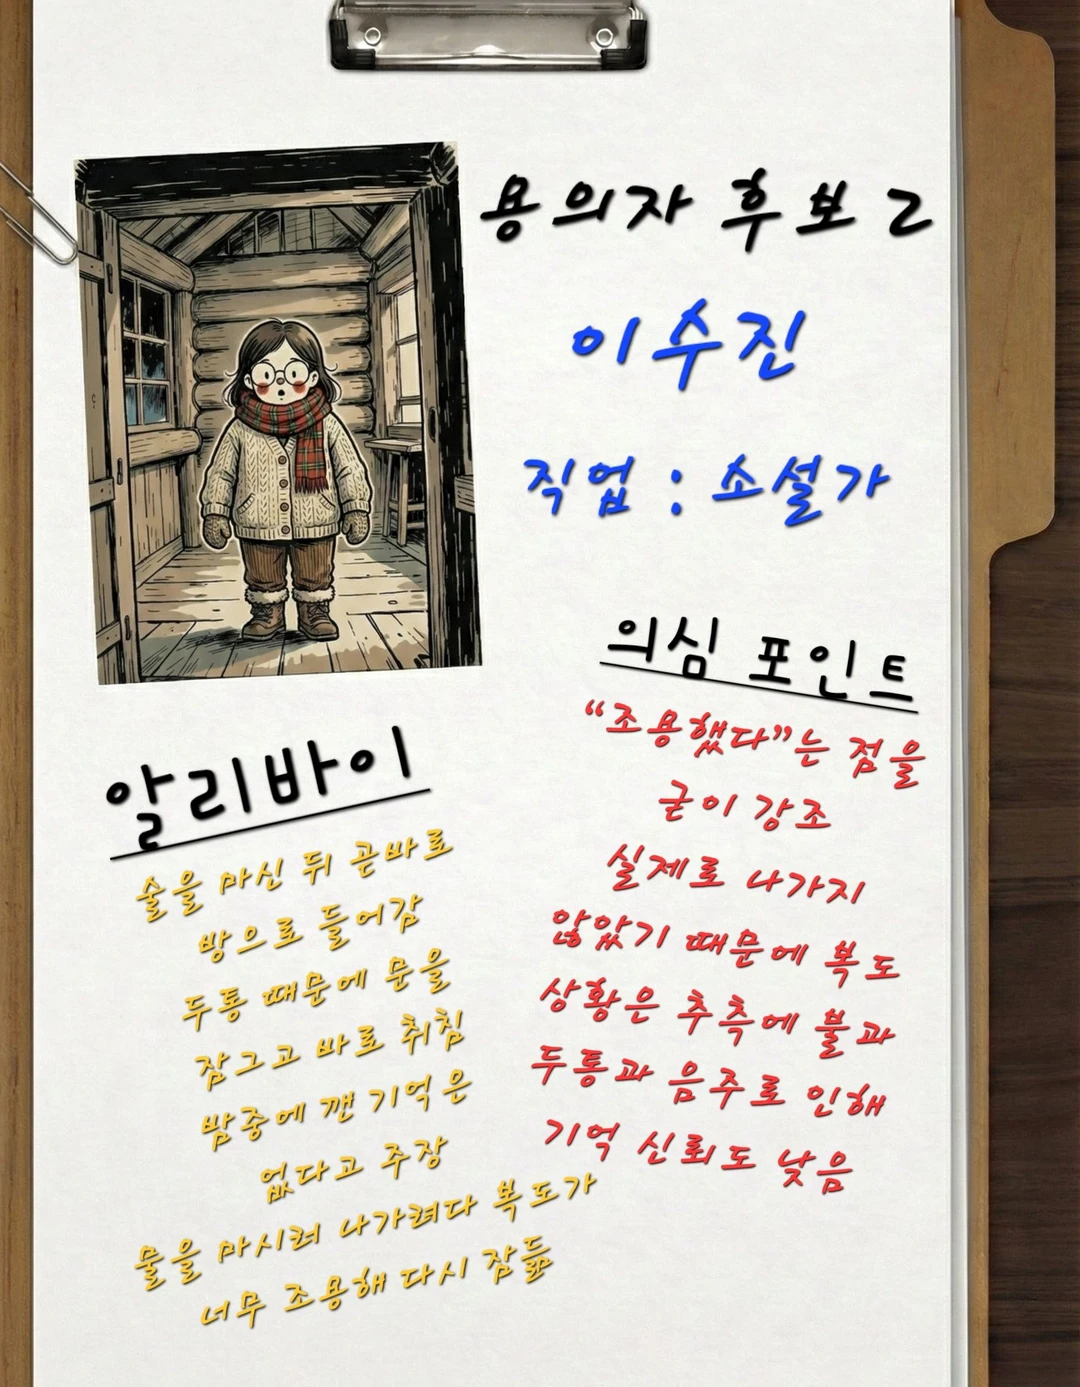 용의자 후보 2
이수진
직업 : 소설가
의심 포인트
“조용했다”는 점을
굳이 강조
실제로 나가지
않았기 때문에 복도
상황은 추측에 불과
두통과 음주로 인해
기억 신뢰도 낮음
알리바이
술을 마신 뒤 곧바로
방으로 들어감
두통 때문에 문을
잠그고 바로 취침
밤중에 깬 기억은
없다고 주장
물을 마시러 나가려다 복도가
너무 조용해 다시 잠듦